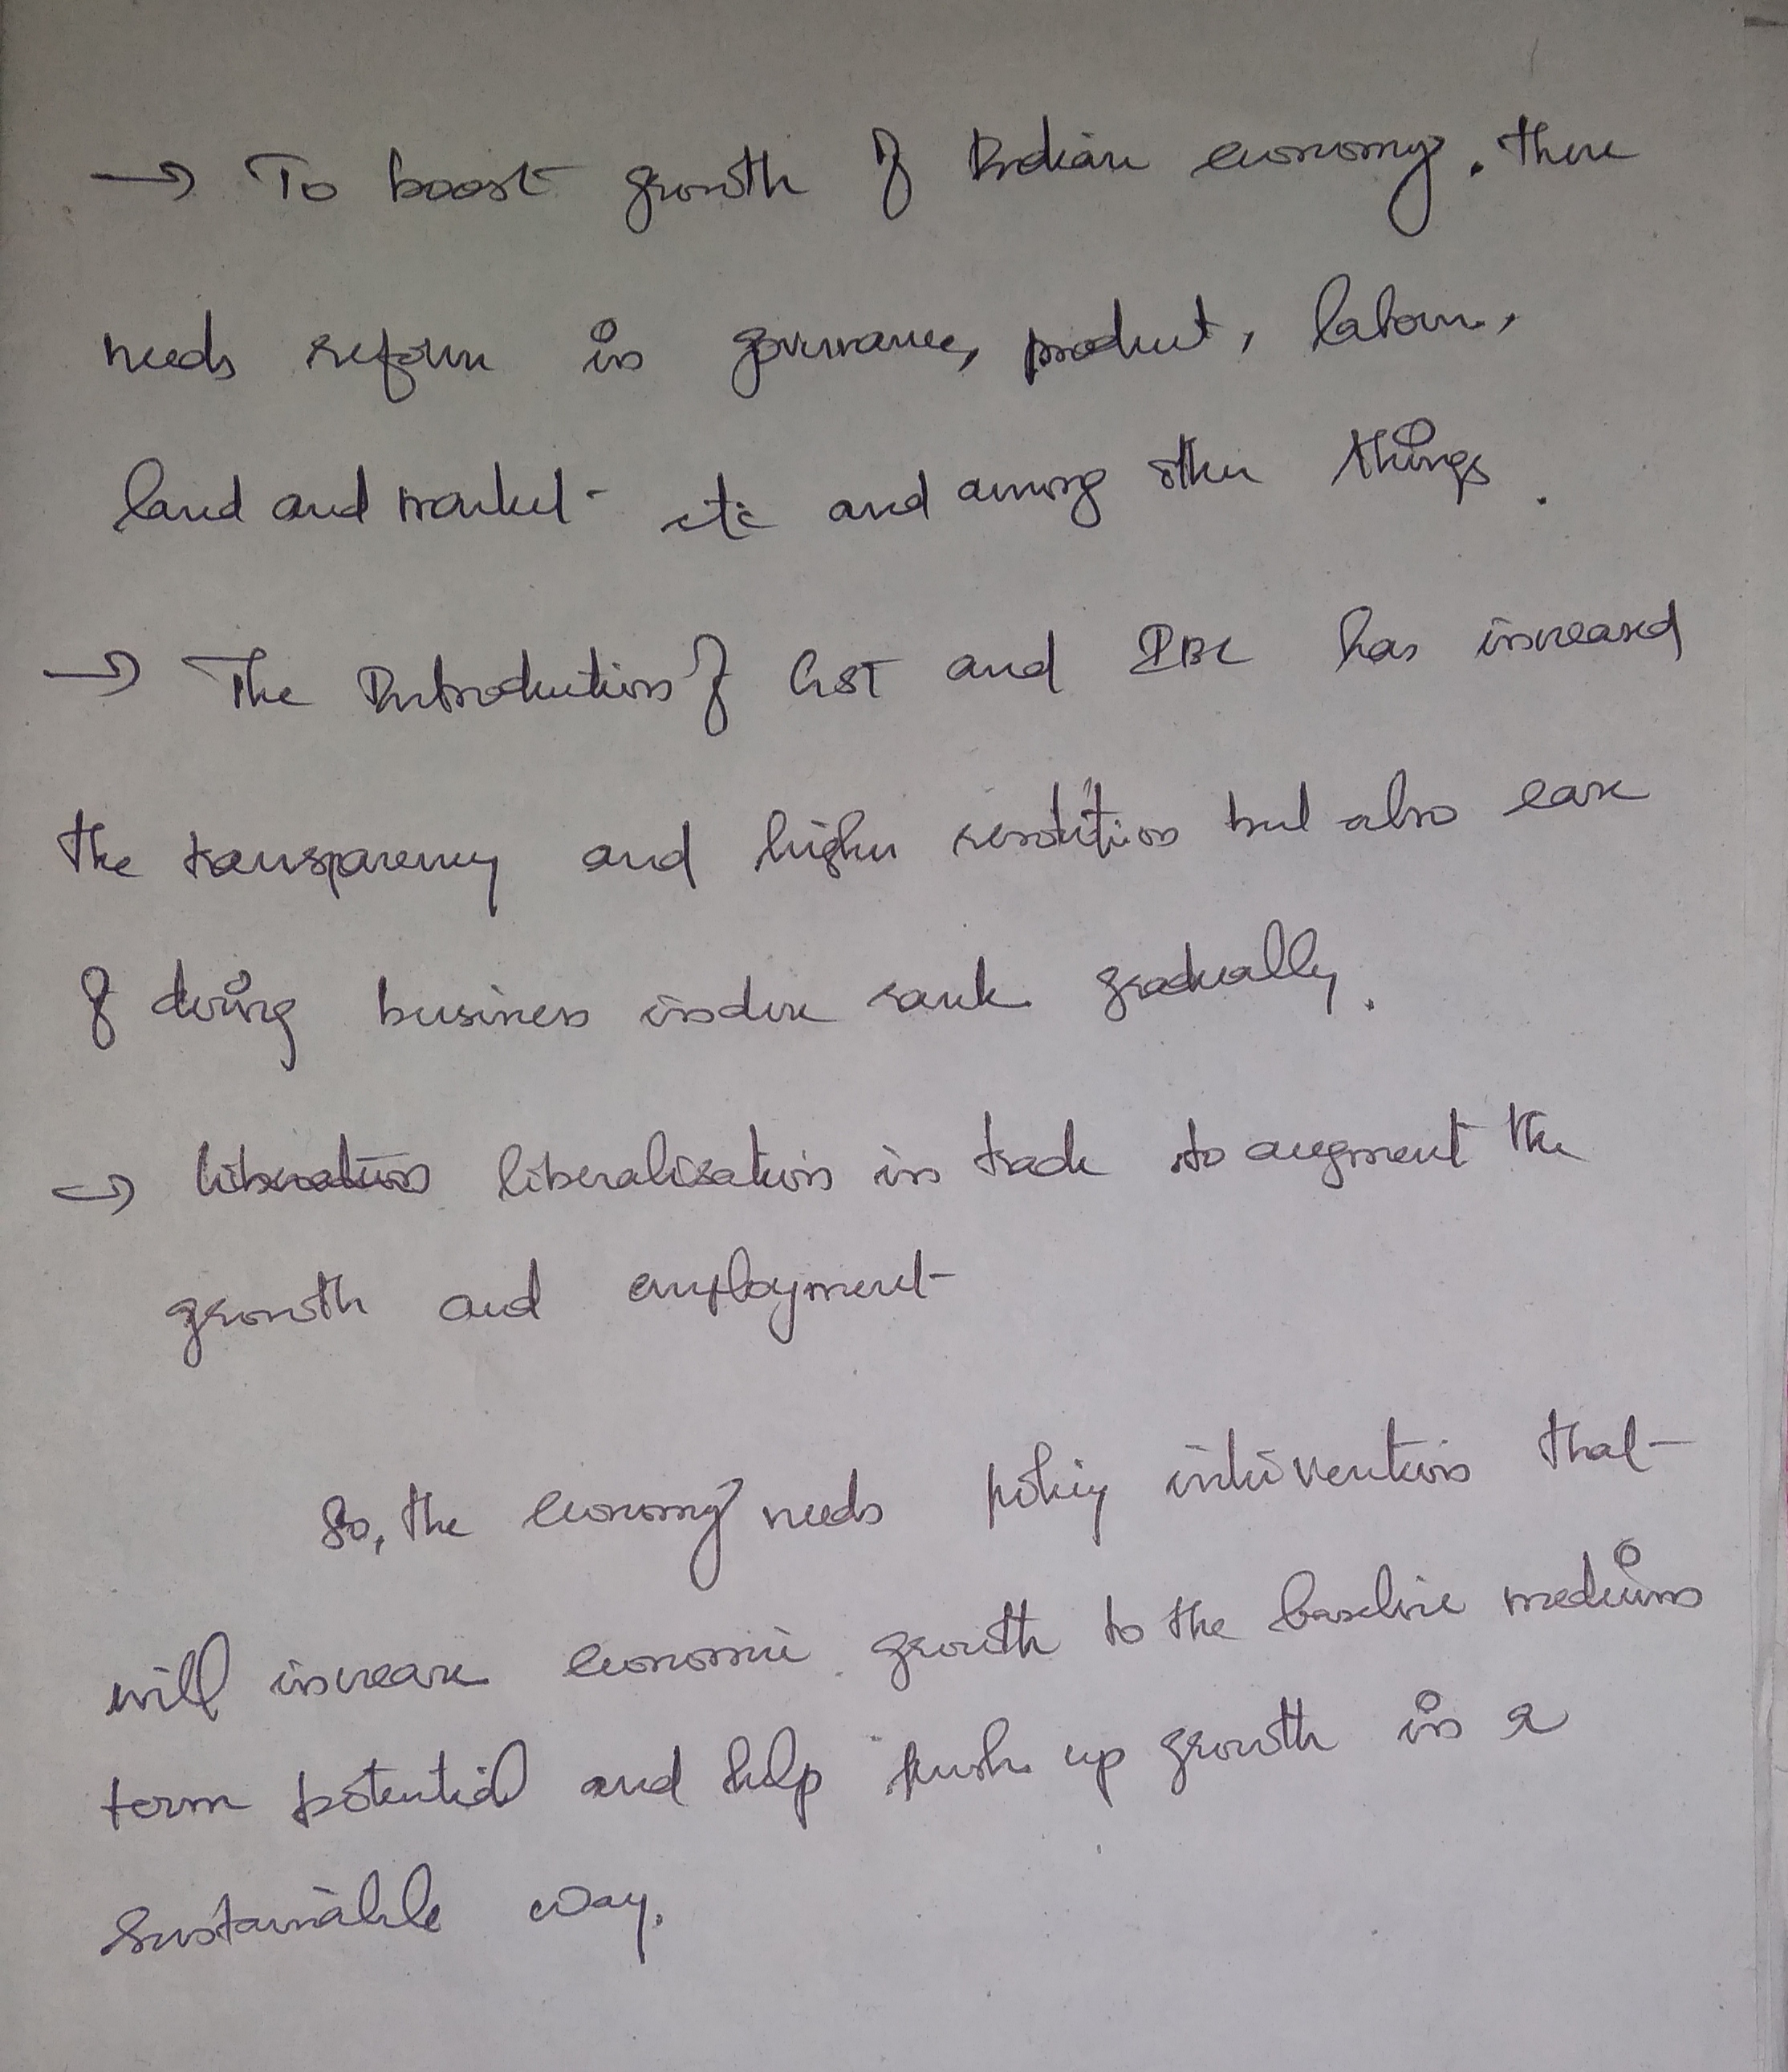 → To boost growth of Indian economy. there
needs reform in governance, product, labour,
land and market etc and among other things.
→ The Introduction of GST and IBC has increased
the transparency and higher resolution but also ease
of doing business index rank gradually.
→ liberation liberalisation in trade to augment the
growth and employment
So, the economy needs policy intervention that
will increase economic growth to the baseline medium
term potential and help push up growth in a
sustainable way.